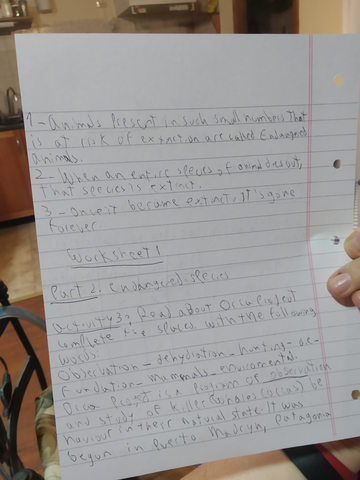 1 - Animals Present in such small numbers That
is at risk of extinction are called Endangered
animals.
2 - When an entire species of animal dies out,
That species is extinct.
3 - Once it became extinct, It's gone
forever.
Worksheet 1
Part 2: endangered species
Activity 3: Read about Orca Project
complete the spaces with the following
words:
Observation - dehydration - hunting - de-
Fundation - mammals - enviromental.
Orca Project is a Program of observation
and study of killer whales (orcas) be
haviour in their natural state. It was
begun in Puerto Madryn, Patagonia